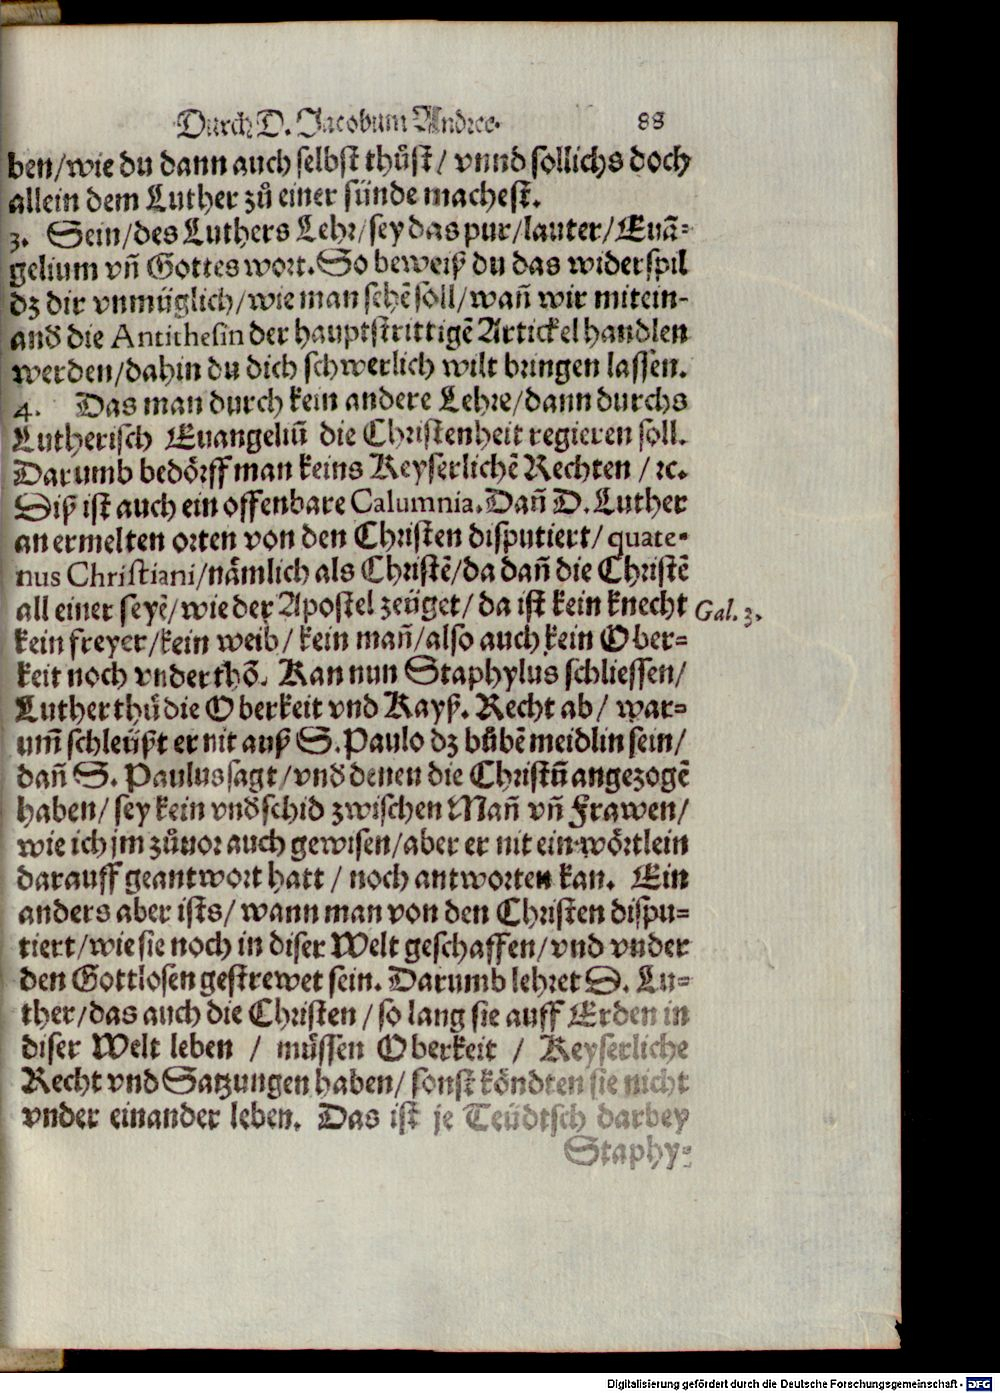 Durch D. Jacobum Andree. 88
ben/wie du dann auch selbst thůst/ vnnd sollichs doch
allein dem Luther zů einer sünde machest.
3. Sein/des Luthers Lehr/sey das pur/lauter/Euã-
gelium vñ Gottes wort. So beweiß du das widerspil
dz dir vnmüglich/wie man sehẽ soll/wañ wir mitein-
and die Antithesin der hauptstrittigẽ Artickel handlen
werden/dahin du dich schwerlich wilt bringen lassen.
4. Das man durch kein andere Lehre/dann durchs
Lutherisch Euangeliũ die Christenheit regieren soll.
Darumb bedörff man keins Keyserlichẽ Rechten /ꝛc.
Diß ist auch ein offenbare Calumnia. Dañ D. Luther
an ermelten orten von den Christen disputiert/ quate-
nus Christiani/nämlich als Christẽ/da dañ die Christẽ
all einer seyẽ/wie der Apostel zeüget/ da ist kein knecht
Gal. 3.
kein freyer/kein weib/ kein mañ/also auch kein Ober-
keit noch vnderthõ. Kan nun Staphylus schliessen/
Luther thů die Oberkeit vnd Kayß. Recht ab/ war-
um̃ schleüßt er nit auß S. Paulo dz bůbẽ meidlin sein/
dañ S. Paulus sagt/vnd denen die Christũ angezogẽ
haben/ sey kein vnd̃schid zwischen Mañ vñ Frawen/
wie ich jm zůuor auch gewisen/aber er nit ein wörtlein
darauff geantwort hatt / noch antworten kan. Ein
anders aber ists/ wann man von den Christen dispu-
tiert/wie sie noch in diser Welt geschaffen/vnd vnder
den Gottlosen gestrewet sein. Darumb lehret D. Lu-
ther/das auch die Christen /so lang sie auff Erden in
diser Welt leben / müssen Oberkeit / Keyserliche
Recht vnd Satzungen haben/ sonst köndten sie nicht
vnder einander leben. Das ist je Teüdtsch darbey
Staphy-
Digitalisierung gefördert durch die Deutsche Forschungsgemeinschaft - DFG